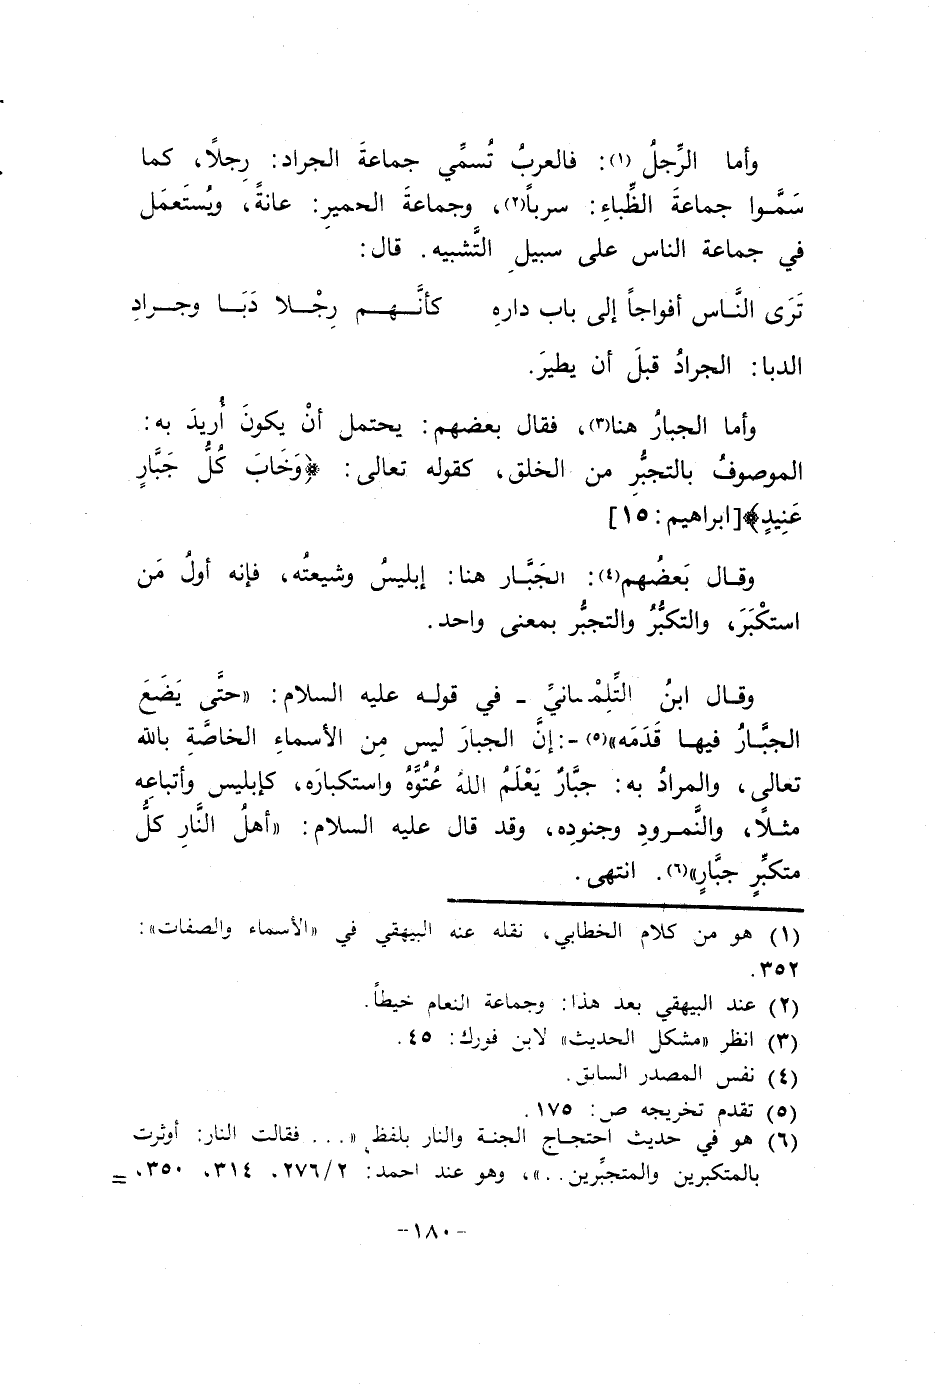 وأما الرِّجلُ (١): فالعربُ تُسمِّي جماعةَ الجراد: رِجلاً، كما
سَمَّوا جماعةَ الظِّباءِ: سرباً(٢)، وجماعةَ الحميرِ: عانةً، ويُستَعمَل
في جماعة الناس على سبيلِ التَّشبيه. قال:
تَرَى النَّاس أفواجاً إلى باب دارهِ كأنَّهم رِجْلا دَبَا وجرادِ
الدبا: الجرادُ قبلَ أن يطيرَ.
وأما الجبارُ هنا(٣)، فقال بعضهم: يحتمل أنْ يكونَ أُريدَ به:
الموصوفُ بالتجبُّرِ من الخلق، كقوله تعالى: ﴿وَخَابَ كُلُّ جَبَّارٍ
عَنِيدٍ﴾[ابراهيم: ١٥]
وقال بَعضُهم(٤): الجَبَّار هنا: إبليسُ وشيعتُه، فإنه أولُ مَن
استكْبَرَ، والتكبُّرُ والتجبُّر بمعنى واحد.
وقال ابنُ التِّلِمْسانيِّ - في قوله عليه السلام: «حتَّى يَضَعَ
الجبَّارُ فيها قَدَمَه»(٥) -: إنَّ الجبارَ ليس مِن الأسماءِ الخاصَّةِ بالله
تعالى، والمرادُ به: جبَّارٌ يَعْلَمُ اللهُ عُتُوَّهُ واستكبارَه، كإبليس وأتباعِه
مثلاً، والنَّمرودِ وجنودِه، وقد قال عليه السلام: «أهلُ النَّارِ كلُّ
متكبِّرٍ جبَّارٍ»(٦). انتهى.
(١) هو من كلام الخطابي، نقله عنه البيهقي في «الأسماء والصفات»:
٣٥٢.
(٢) عند البيهقي بعد هذا: وجماعة النعام خيطاً.
(٣) انظر «مشكل الحديث» لابن فورك: ٤٥.
(٤) نفس المصدر السابق.
(٥) تقدم تخريجه ص: ١٧٥.
(٦) هو في حديث احتجاج الجنة والنار بلفظ «... فقالت النار: أوثرت
بالمتكبرين والمتجبِّرين..»، وهو عند احمد: ٢٧٦/٢، ٣١٤، ٣٥٠، =
-١٨٠-